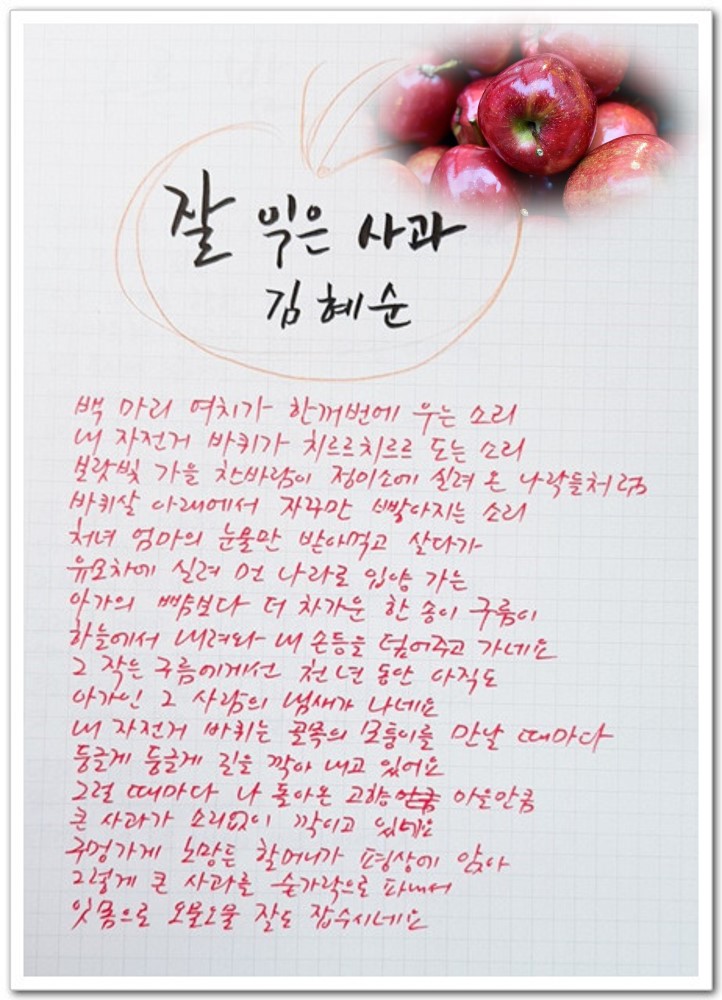 잘 익은 사과
김혜순
백 마리 여치가 한꺼번에 우는 소리
내 자전거 바퀴가 치르르치르르 도는 소리
보랏빛 가을 찬바람이 정미소에 실려 온 나락들처럼
바퀴살 아래에서 자꾸만 빻아지는 소리
처녀 엄마의 눈물만 받아먹고 살다가
유모차에 실려 먼 나라로 입양 가는
아가의 뺨보다 더 차가운 한 송이 구름이
하늘에서 내려와 내 손등을 덮어주고 가네요
그 작은 구름에게선 천 년 동안 아직도
아가인 그 사람의 냄새가 나네요
내 자전거 바퀴는 골목의 모퉁이를 만날 때마다
둥글게 둥글게 길을 깎아 내고 있어요
그럴 때마다 나 돌아온 고향 마을만큼
큰 사과가 소리없이 깎이고 있네요
구멍가게 노망든 할머니가 평상에 앉아
그렇게 큰 사과를 숟가락으로 파내서
잇몸으로 오물오물 잘도 잡수시네요